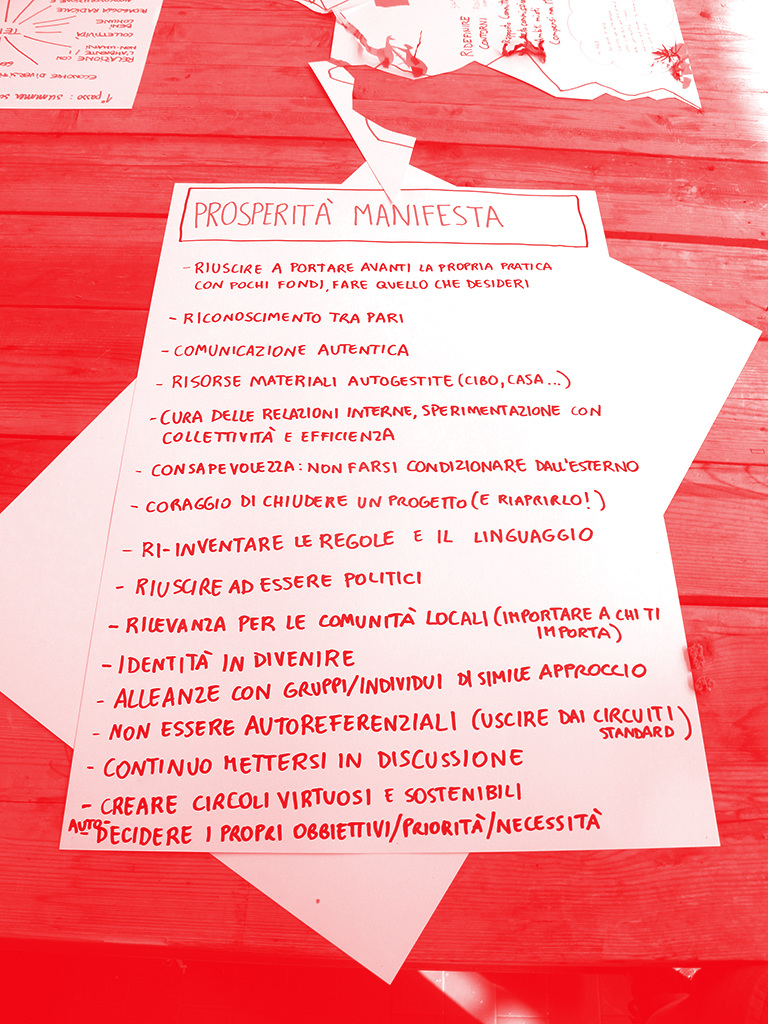 PEDAGOGIA RADICALE
COLLETTIVITÀ
NON UMANI
L'AMBIENTE /I
RELAZIONE CON
ECONOMIE
1° passo: summer
RIDEFINIRE
CONTORNI
PROSPERITÀ MANIFESTA
- RIUSCIRE A PORTARE AVANTI LA PROPRIA PRATICA
CON POCHI FONDI, FARE QUELLO CHE DESIDERI
- RICONOSCIMENTO TRA PARI
- COMUNICAZIONE AUTENTICA
- RISORSE MATERIALI AUTOGESTITE (CIBO, CASA...)
- CURA DELLE RELAZIONI INTERNE, SPERIMENTAZIONE CON
COLLETTIVITÀ E EFFICIENZA
- CONSAPEVOLEZZA: NON FARSI CONDIZIONARE DALL'ESTERNO
- CORAGGIO DI CHIUDERE UN PROGETTO (E RIAPRIRLO!)
- RI-INVENTARE LE REGOLE E IL LINGUAGGIO
- RIUSCIRE AD ESSERE POLITICI
- RILEVANZA PER LE COMUNITÀ LOCALI (IMPORTARE A CHI TI
IMPORTA)
- IDENTITÀ IN DIVENIRE
- ALLEANZE CON GRUPPI/INDIVIDUI DI SIMILE APPROCCIO
- NON ESSERE AUTOREFERENZIALI (USCIRE DAI CIRCUITI
STANDARD)
- CONTINUO METTERSI IN DISCUSSIONE
- CREARE CIRCOLI VIRTUOSI E SOSTENIBILI
AUTO-DECIDERE I PROPRI OBBIETTIVI/PRIORITÀ/NECESSITÀ